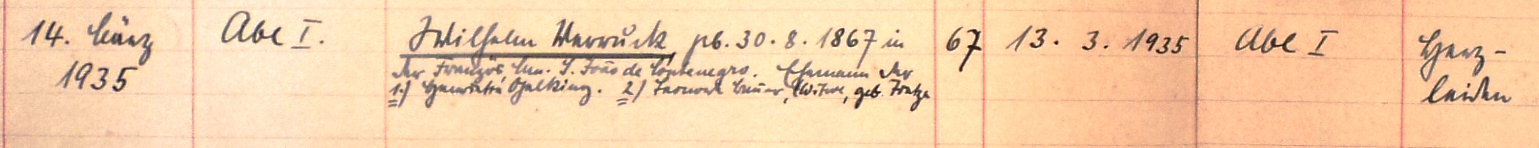 14. März
1935
Abc I.
Wilhelm Werruck, gb. 30. 8. 1867 in
der Französ. Lin. S. João de Montenegro. Ehemann der
1.) Henriette 2.) Witwe, geb.
67
13. 3. 1935
Abc I
Herz-
leiden